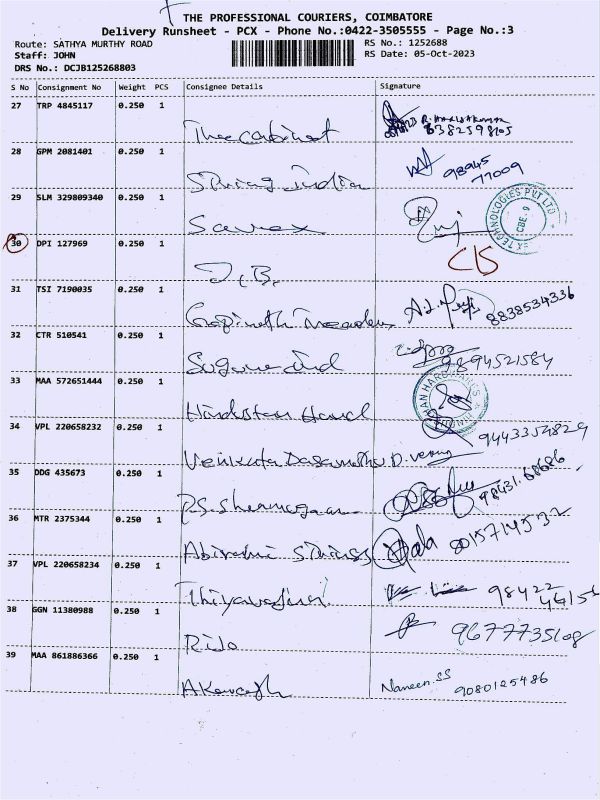 THE PROFESSIONAL COURIERS, COIMBATORE
Delivery Runsheet - PCX - Phone No.:0422-3505555 - Page No.:3
Route: SATHYA MURTHY ROAD RS No.: 1252688
Staff: JOHN RS Date: 05-Oct-2023
DRS No.: DCJB125268803
S No Consignment No Weight PCS Consignee Details Signature
27 TRP 4845117 0.250 1
The cabinet 6382598105
28 GPM 2081401 0.250 1
String india 98945
77009
29 SLM 329809340 0.250 1
Savex
TECHNOLOGIES PVT LTD
CBE-9
30 DPI 127969 0.250 1
I.B.
31 TSI 7190035 0.250 1
Gopinath 8838534336
32 CTR 510541 0.250 1
Suguna Ind 9894521584
33 MAA 572651444 0.250 1
Hindustan Hand
34 VPL 220658232 0.250 1 9443354829
Venkata Dasamathu
35 DDG 435673 0.250 1
P.S. Shanmugam 98431.68686
36 MTR 2375344 0.250 1
Abirami 8015714532
37 VPL 220658234 0.250 1
Thiyagarajan 98422
44156
38 GGN 11380988 0.250 1
Rido 9677735108
39 MAA 861886366 0.250 1
Akarsh Naneen.SS 9080125486